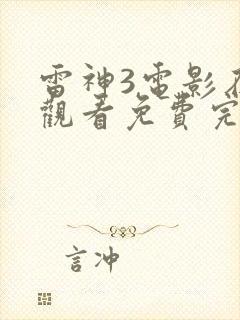 雷神3電影
觀看免費完
言冲